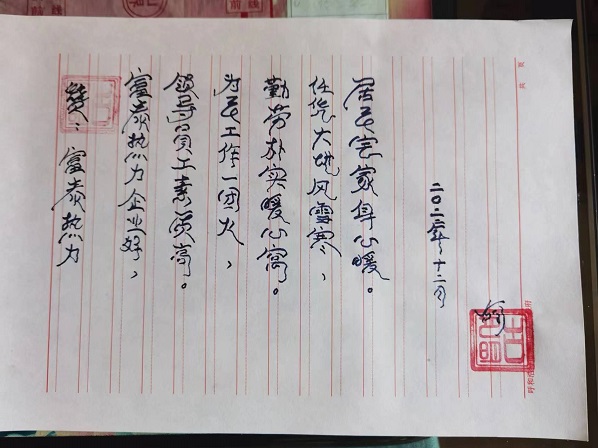 赞：富泰热力
富泰热力企业好，
领导员工素质高。
为民工作一团火，
勤劳朴实暖心窝。
任凭大地风雪寒，
居民宅家身心暖。
二〇二三年十二月
呼和浩